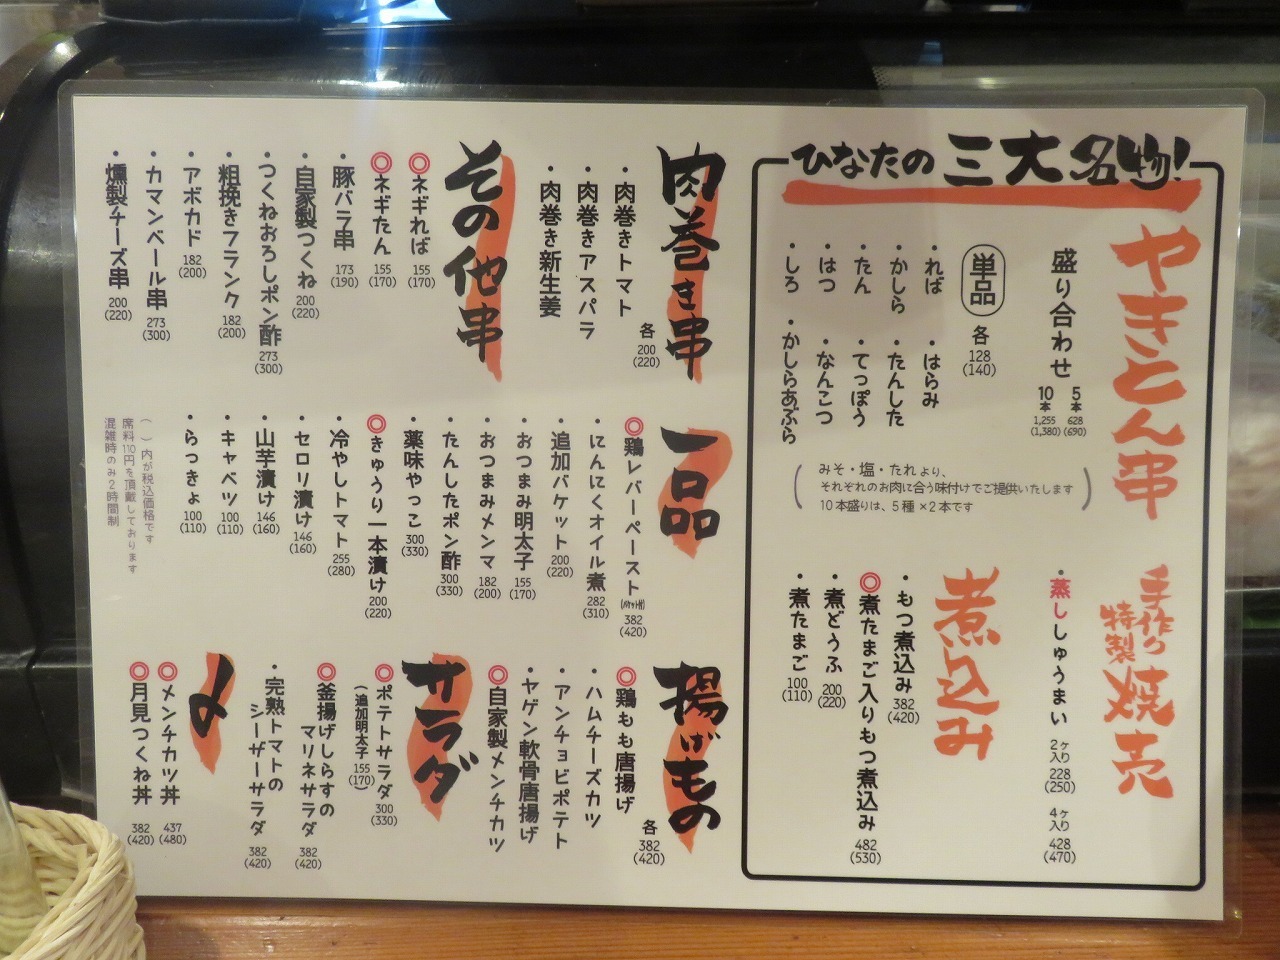 ひなたの三大名物!
やきとん串
盛り合わせ
5本 628 (690)
10本 1,255 (1,380)
単品 各 128 (140)
・れば ・はらみ
・かしら ・たんした
・たん ・てっぽう
・はつ ・なんこつ
・しろ ・かしらあぶら
(みそ・塩・たれより、
それぞれのお肉に合う味付けでご提供いたします
10本盛りは、5種×2本です)
手作り特製焼売
・蒸ししゅうまい 2ヶ入り 228 (250) 4ヶ入り 428 (470)
煮込み
・もつ煮込み 382 (420)
◎煮たまご入りもつ煮込み 482 (530)
・煮どうふ 200 (220)
・煮たまご 100 (110)
肉巻き串
各 200 (220)
・肉巻きトマト
・肉巻きアスパラ
・肉巻き新生姜
その他串
◎ネギれば 155 (170)
◎ネギたん 155 (170)
・豚バラ串 173 (190)
・自家製つくね 200 (220)
・つくねおろしポン酢 273 (300)
・粗挽きフランク 182 (200)
・アボカド 182 (200)
・カマンベール串 273 (300)
・燻製チーズ串 200 (220)
一品
◎鶏レバーペースト 382 (420)
・にんにくオイル煮 282 (310)
・追加バケット 200 (220)
・おつまみ明太子 155 (170)
・おつまみメンマ 182 (200)
・たんしたポン酢 300 (330)
・薬味やっこ 300 (330)
◎きゅうり一本漬け 200 (220)
・冷やしトマト 255 (280)
・セロリ漬け 146 (160)
・山芋漬け 146 (160)
・キャベツ 100 (110)
・らっきょ 100 (110)
( )内が税込価格です
席料110円を頂戴しております
混雑時のみ2時間制
揚げもの
各 382 (420)
◎鶏もも唐揚げ
・ハムチーズカツ
・アンチョビポテト
・ヤゲン軟骨唐揚げ
◎自家製メンチカツ
サラダ
◎ポテトサラダ 300 (330)
(追加明太子 155 (170))
◎釜揚げしらすの
マリネサラダ 382 (420)
・完熟トマトの
シーザーサラダ 382 (420)
〆
◎メンチカツ丼 437 (480)
◎月見つくね丼 382 (420)